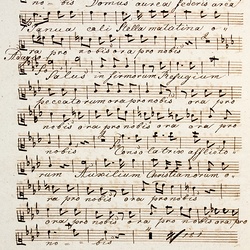 no - bis Domus aurea federis area
Janua cali Stella matutina o
ra pro nobis ora pro nobis
Salus infirmorum Refugium
peccatorum ora pro nobis ora pro
nobis ora pro nobis ora pro
nobis Consolatrix afflicto
rum Auxilium Christianorum o
ra pro nobis ora pro nobis
ora pro nobis ora pro nobis ora pro
no - - - bis